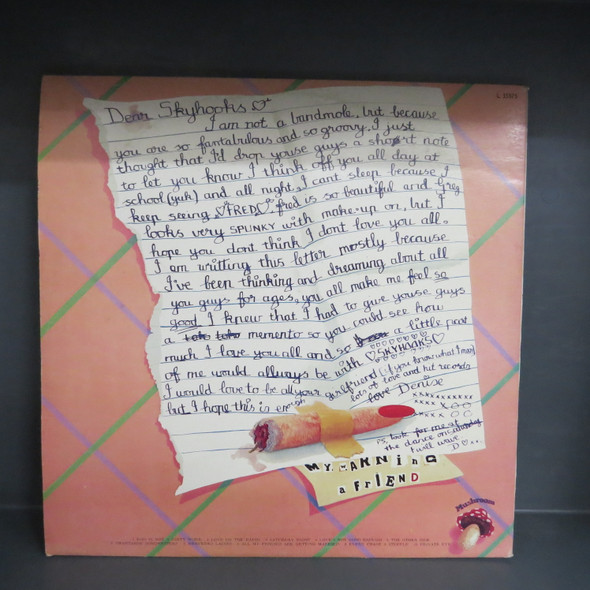 Dear Skyhooks
I am not a bandmole, but because
you are so fantabulous and so groovy. I just
thought that I'd drop youse guys a short note
to let you know I think off you all day at
school (yuk) and all night, I cant sleep because I
keep seeing FRED fred is so bautiful and Greg
looks very SPUNKY with make-up on, but I
hope you dont think I dont love you all.
I am writting this letter mostly because
I've been thinking and dreaming about all
you guys for ages, you all make me feel so
good I knew that I had to give youse guys
a memento so you could see how
much I love you all and so a little part
of me would allways be with SKYHOOKS
I would love to be all your girlfriend (if you know what I mean)
but I hope this is enough lots of love and hit records
love Denise
xxxxxxxxxx
P.S. look for me at
the dance on
I will wave
D
MY WARNING
a FRIEND
Mushroom